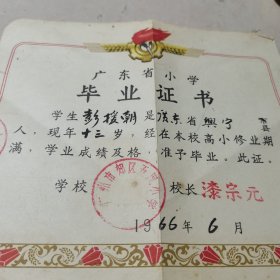 广东省小学
毕业证书
学生彭援朝是广东省兴宁市县
人，现年十三岁，经在本校高小修业期
满，学业成绩及格，准予毕业。此证。
学校 校长 漆宗元
1966年6月